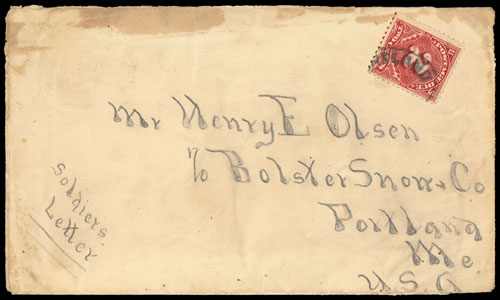 Mr Henry E Olsen
c/o Bolster Snow & Co
Portland
Me
U.S.A.
Soldiers
Letter
POSTAGE DUE